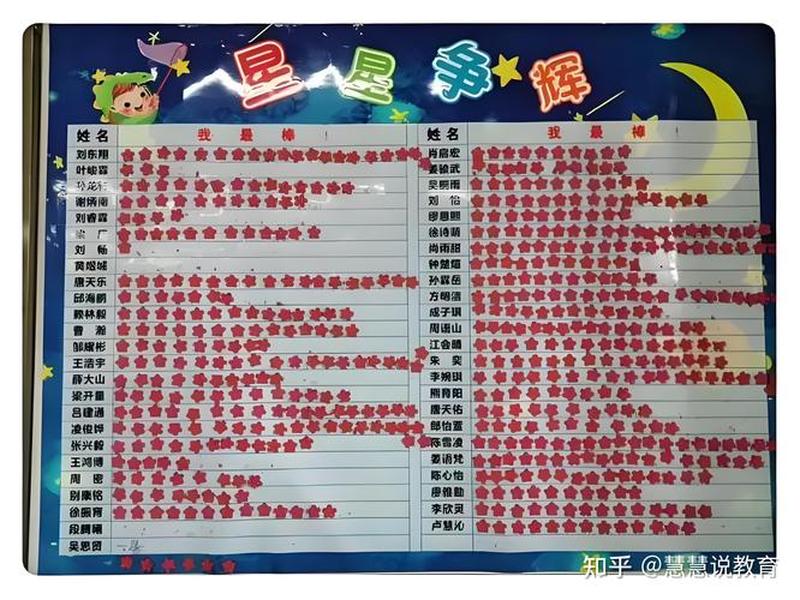 星星争辉
姓名 我最棒!
刘东翔
叶峻霖
谢炳南
刘睿霖
梁厂
刘畅
黄煜城
唐天乐
邱海鹏
赖林毅
曹瀚
邹耀彬
王浩宇
薛大山
梁开量
吕建通
凌俊烨
张兴毅
王鸿博
周密
别康铭
徐振育
段腾曦
吴思贤
姓名 我最棒!
肖启宏
姜骏武
刘怡
廖思熙
徐诗萌
尚雨甜
钟楚煊
孙霖岳
方明清
成子琪
周语山
江会晴
朱奕
李婉琪
熊育阳
唐天佑
郎怡萱
陈雪凌
姜语梵
陈心怡
廖雅勤
李欣灵
卢慧沁
知乎 @慧慧说教育